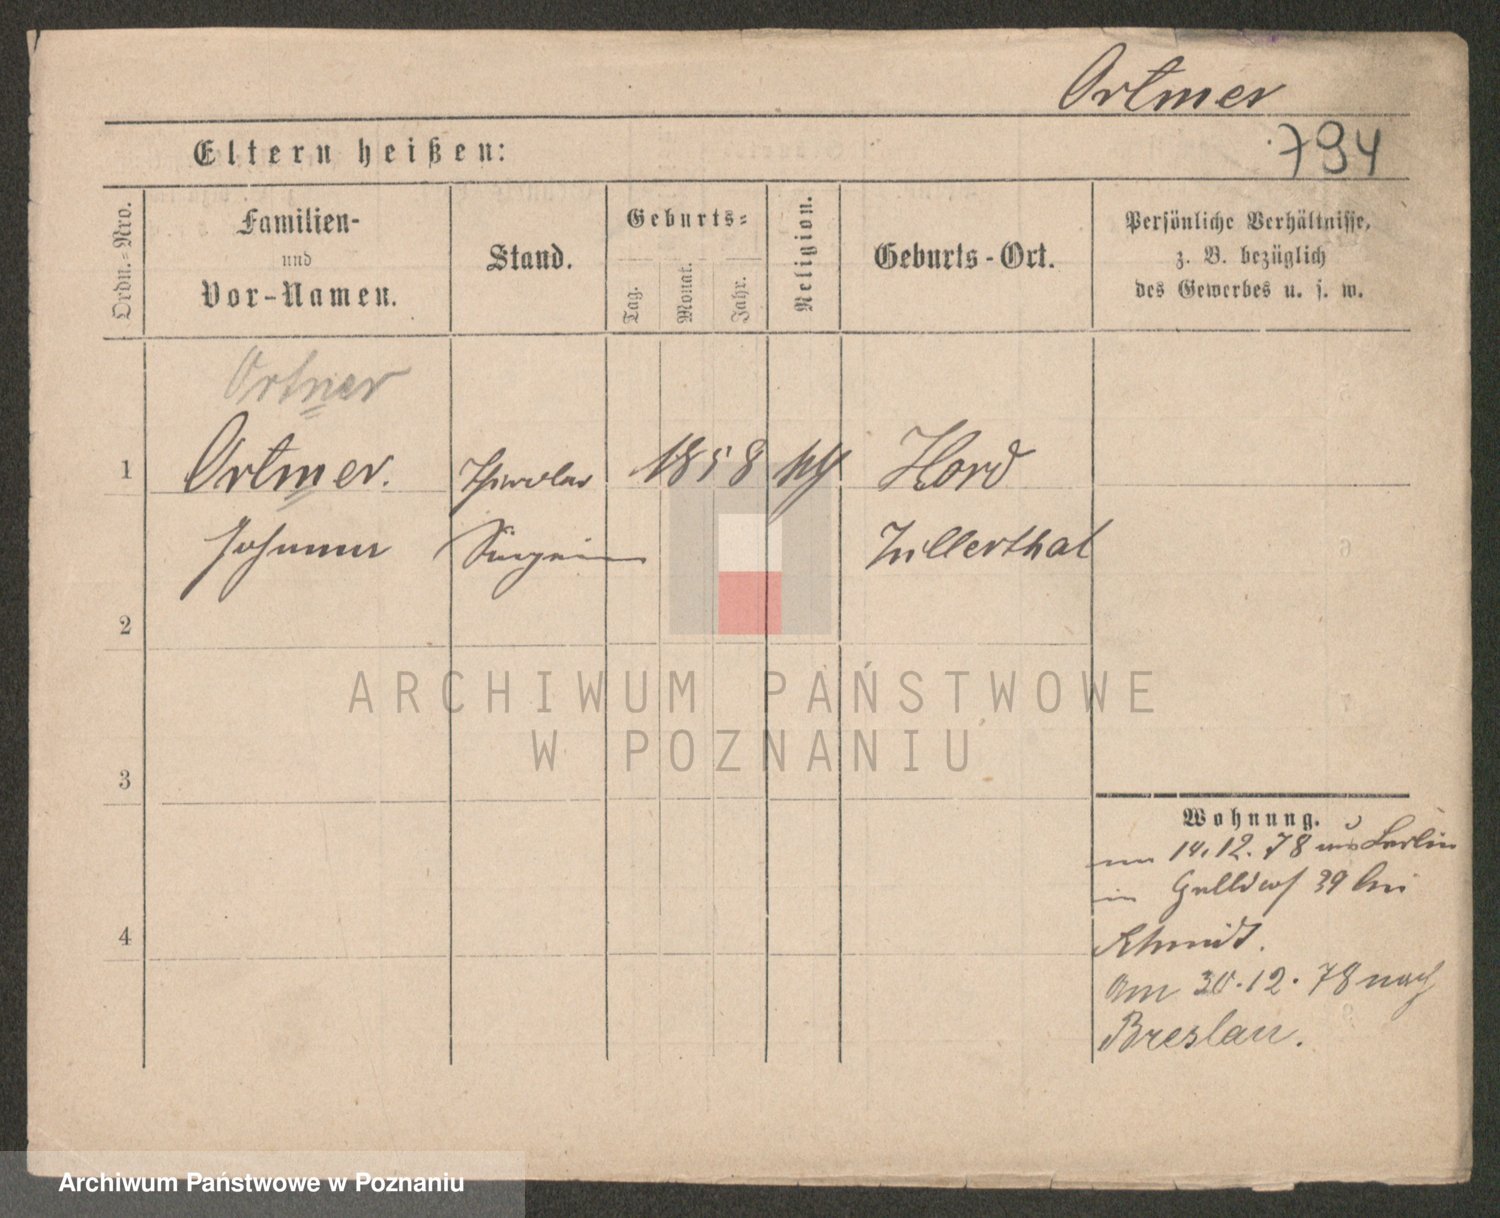 Ortmer
794
Eltern heißen:
Ordn.-Nro.
Familien-
und
Vor-Namen.
Stand.
Geburts-
Tag.
Monat.
Jahr.
Religion.
Geburts-Ort.
Persönliche Verhältnisse,
z. B. bezüglich
des Gewerbes u. s. w.
Ortner
1 Ortmer. 1858 Hard
Zillerthal
2
ARCHIWUM PAŃSTWOWE
W POZNANIU
3
Wohnung.
14.12.78 aus Berlin
in 39 bei
4
Schmidt.
am 30.12.78 nach
Breslau.
Archiwum Państwowe w Poznaniu